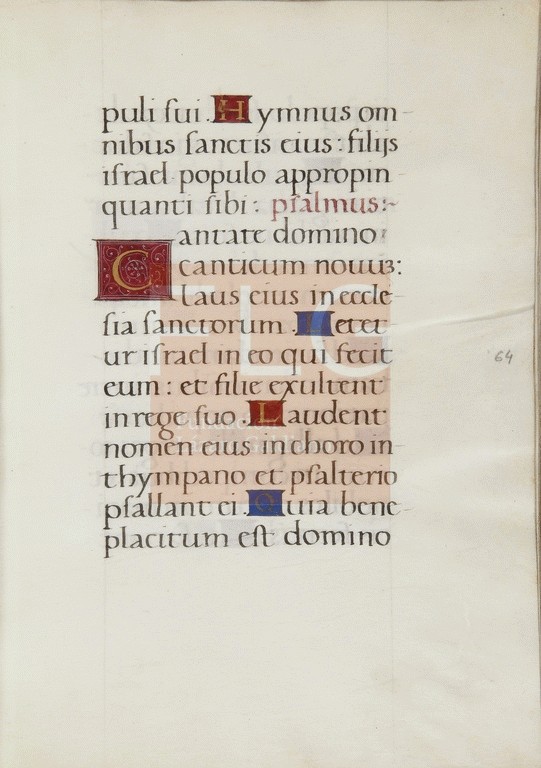 puli sui. Hymnus om-
nibus sanctis eius: filijs
israel populo appropin
quanti sibi: psalmus:-
Cantate domino
canticum nouuȝ:
laus eius in eccle-
sia sanctorum. Letet-
ur israel in eo qui fecit
eum: et filie exultent
in rege suo. Laudent
nomen eius in choro in-
thympano et psalterio
psallant ei. Quia bene-
placitum est domino
64
FLG